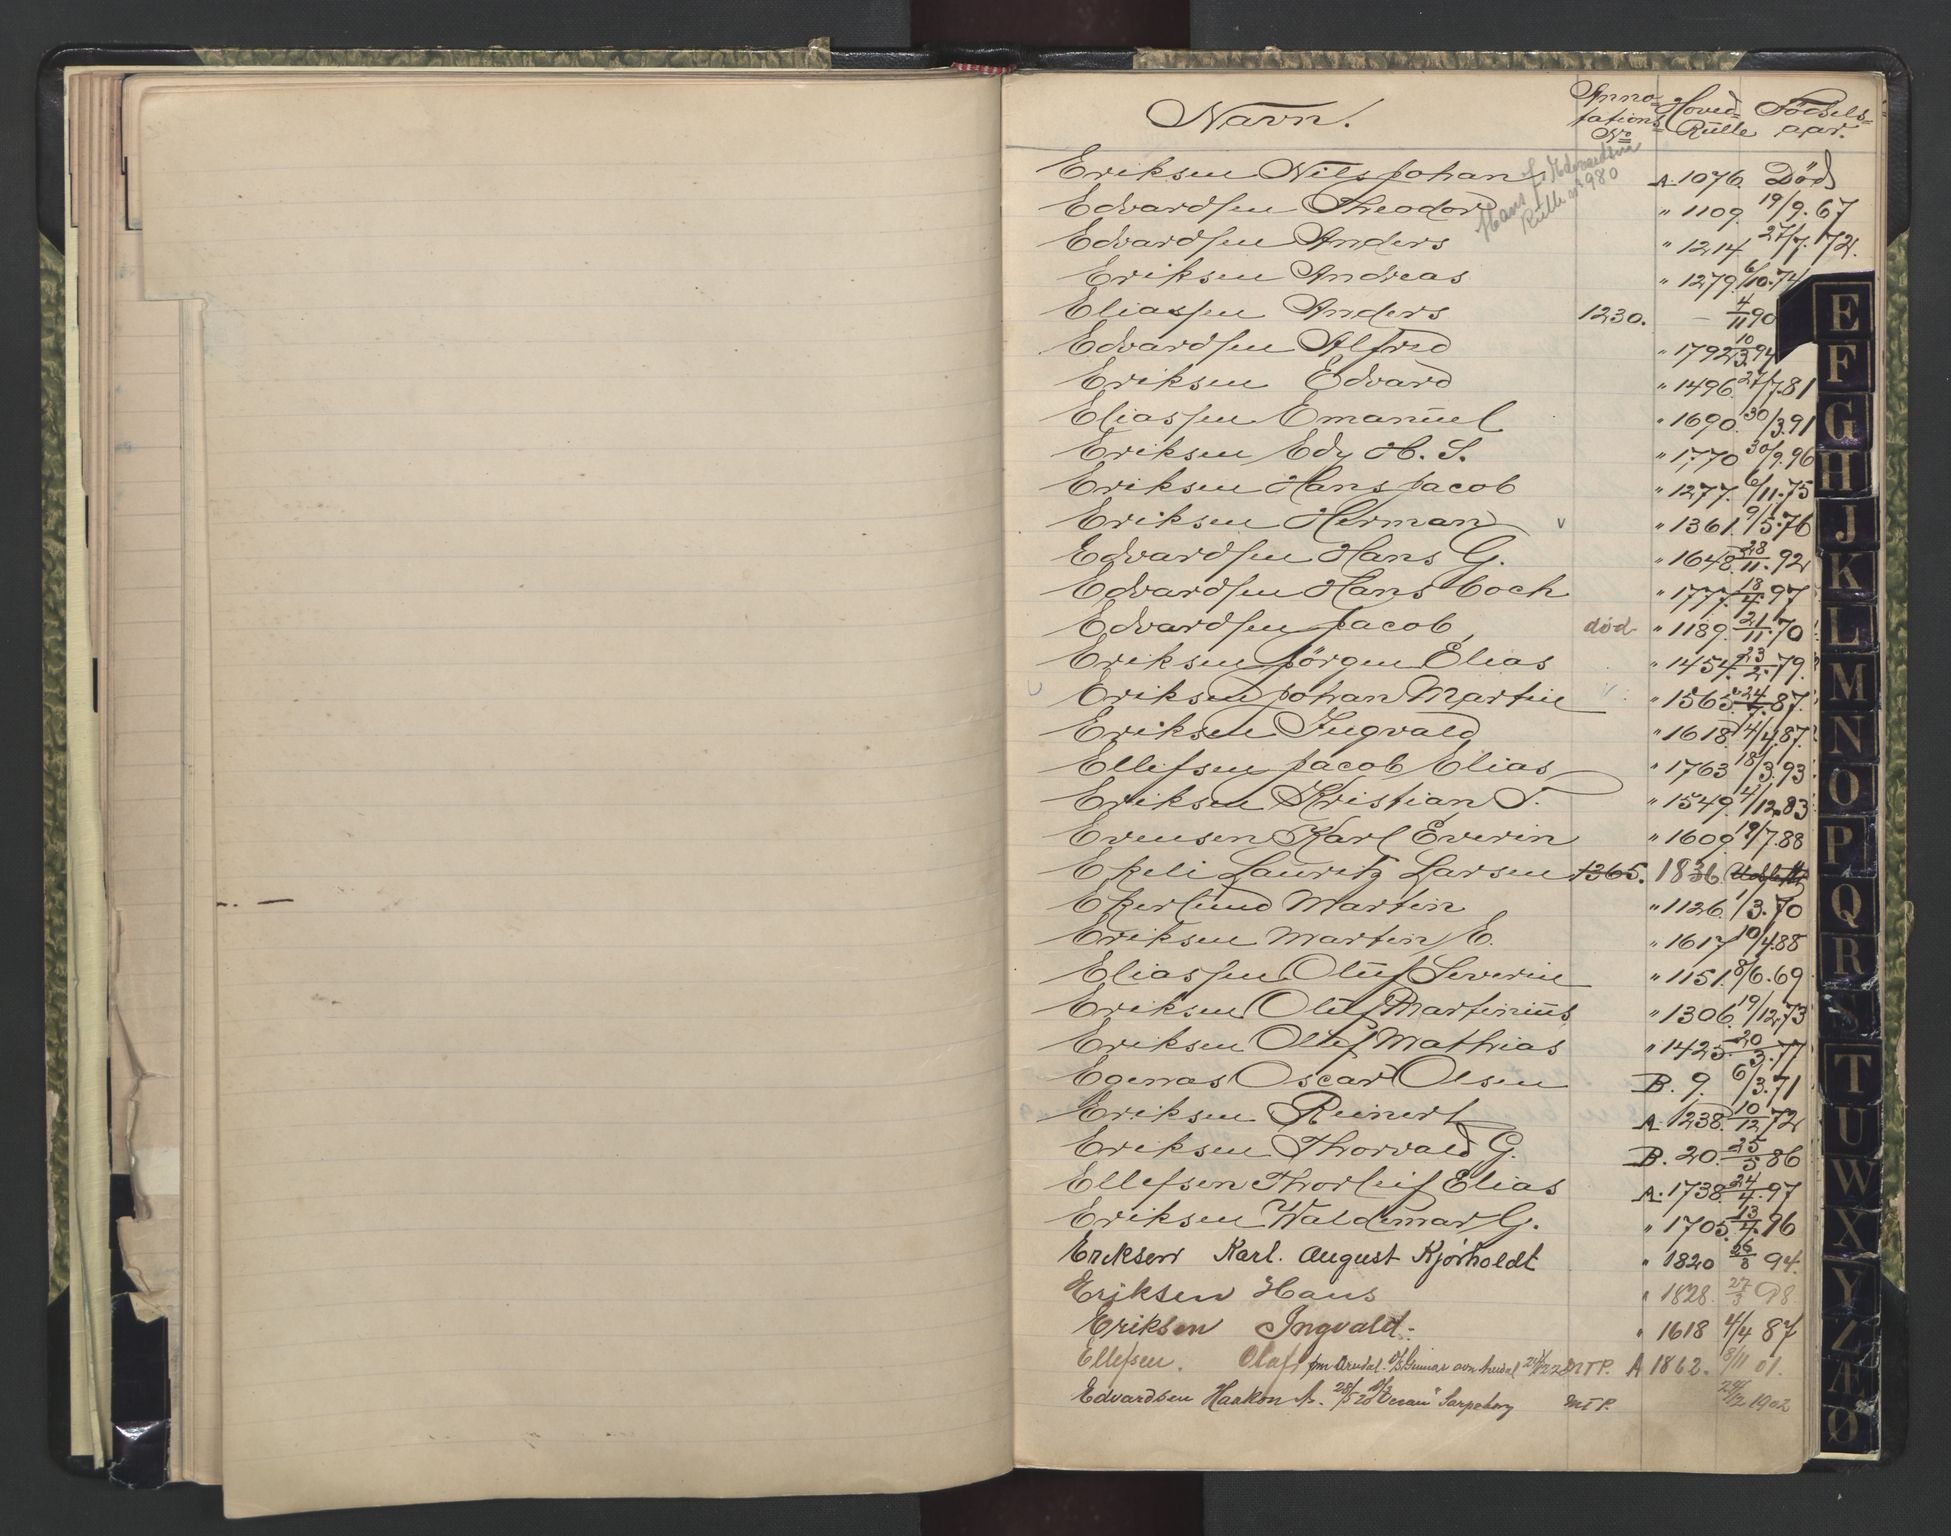 Navn. Anno-tations No Hoved-Rülle Födsels-aar.
Hans J. Edvardsen Rulle nº 980
Eriksen Nils Johan A. 1076. Död
Edvardsen Theodor " 1109. 19/9. 67
Edvardsen Anders " 1214 27/7. 72.
Eriksen Andreas " 1279. 6/10. 74
Eliassen Anders 1230. – 4/11 90
Edvardsen Alfred " 1792 10/3. 94
Eriksen Edvard " 1496. 27/7. 81
Eliassen Emanuel " 1690. 30/3. 91
Eriksen Edy H. S. " 1770 30/9. 96
Eriksen Hans Jacob " 1277. 6/11. 75
Eriksen Herman v " 1361. 9/5. 76
Edvardsen Hans G. " 1648. 28/11. 92
Edvardsen Hans Coch " 1777. 18/4. 97
Edvardsen Jacob död " 1189. 21/11. 70
Eriksen Jörgen Elias " 1454. 23/2. 79.
v Eriksen Johan Martin v " 1565. 24/7. 87.
Eriksen Ingvald " 1618. 4/4. 87.
Ellefsen Jacob Elias " 1763 18/3. 93
Eriksen Kristian T. " 1549. 4/12. 83
Evensen Karl Everin " 1609. 19/7. 88
Ekeli Lauritz Larsen 1365. 1836.
Ekerlund Martin " 1126. 1/3. 70
Eriksen Martin E. " 1617 10/4. 88
Eliassen Olüf Severin " 1151. 8/6. 69
Eriksen Olüf Martiniüs " 1306. 19/12. 73
Eriksen Olüf Mathias " 1425. 20/3. 77
Egenas Oscar Olsen B. 9. 6/3. 71
Eriksen Reinert A. 1238. 10/12 72
Eriksen Thorvald G. B. 20. 25/5 86
Ellefsen Thorleif Elias A. 1738. 24/4. 97
Eriksen Waldemar G. " 1705. 13/4. 96
Eriksen Karl. August Kjörholdt " 1820 26/8 94.
Eriksen Hans " 1828. 27/3 98.
Eriksen Ingvald. " 1618 4/4 87
Ellefsen. Olaf fm Arendal. Gunnar avn Arendal MTP. A 1862. 8/11 01.
Edvardsen Haakon 28/5 20 "Ocean" Sarpsborg MTP. 24/2 1902
E
F
G
H
J
K
L
M
N
O
P
Q
R
S
T
U
W
X
Y
Z
Æ
Ø